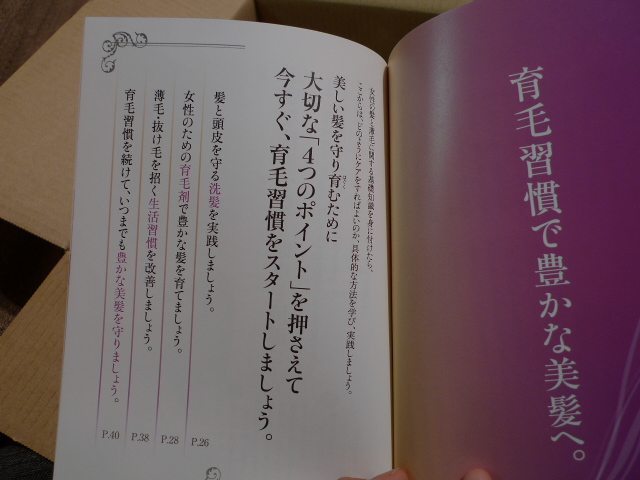 育毛習慣で豊かな美髪へ。
女性の髪と薄毛に関する基礎知識を身に付けたら、
ここからは、どのようにケアをすればよいのか、具体的な方法を学び、実践しましょう。
美しい髪を守り育むために
はぐく
大切な「4つのポイント」を押さえて
今すぐ、育毛習慣をスタートしましょう。
髪と頭皮を守る洗髪を実践しましょう。
P.26
女性のための育毛剤で豊かな髪を育てましょう。
P.28
薄毛・抜け毛を招く生活習慣を改善しましょう。
P.38
育毛習慣を続けて、いつまでも豊かな美髪を守りましょう。
P.40